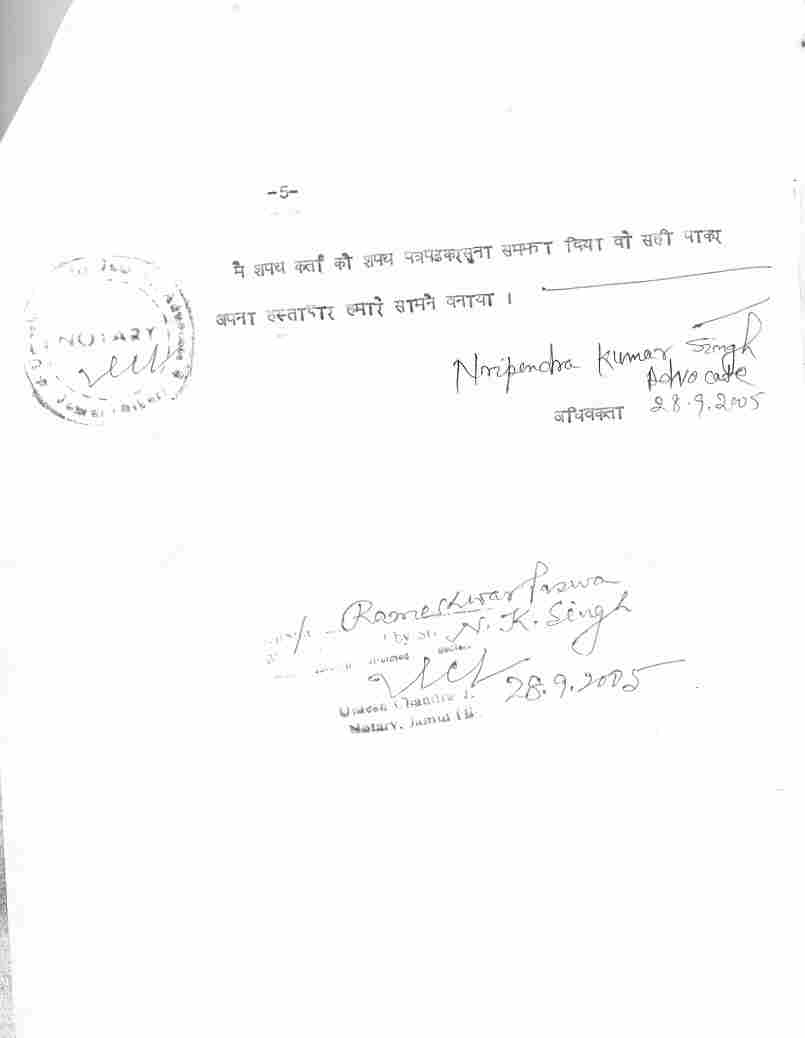 -5-
मै शपथ कर्ता को शपथ पत्रपढकरसुना समझा दिया वो सही पाकर
अपना हस्ताक्षर हमारे सामने बनाया ।
Nripendra Kumar Singh
Advocate
अधिवक्ता 28.9.2005
NOTARY
Rameshwar Paswa
by N. K. Singh
28.9.2005
Chandra
Notary, Jamui